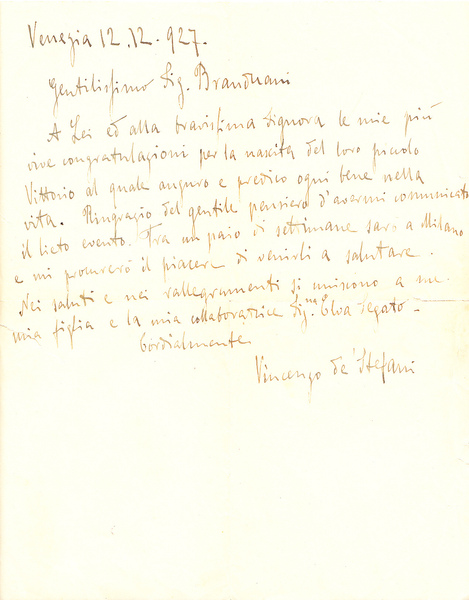 Venezia 12.12.927.
Gentilissimo Sig. Brandmani
A Lei ed alla bravissima Signora le mie più
vive congratulazioni per la nascita del loro piccolo
Vittorio al quale auguro e predico ogni bene nella
vita. Ringrazio del gentile pensiero d'avermi comunicato
il lieto evento. Tra un paio di settimane sarò a Milano
e mi procurerò il piacere di venirli a salutare.
Nei saluti e nei rallegramenti si uniscono a me
mia figlia e la mia collaboratrice Sig.na Elva Segato -
Cordialmente
Vincenzo de' Stefani